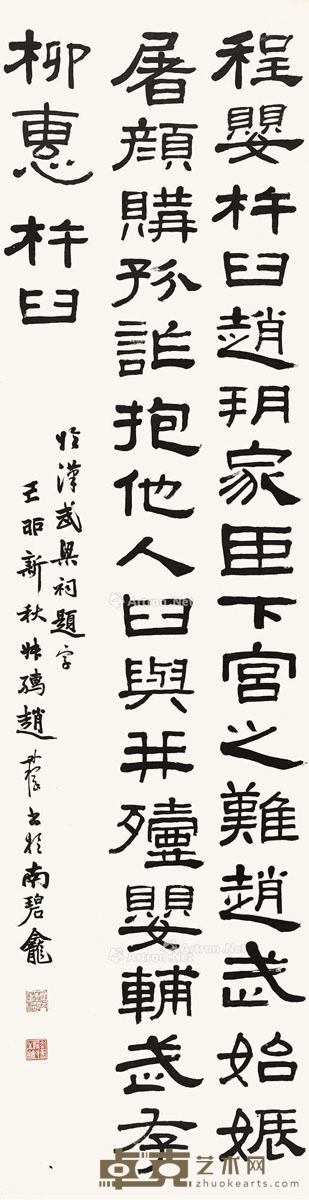 程嬰杵臼趙朔家臣下宮之難趙武始娠
屠顏購孤詐抱他人臼與并殪嬰輔武存
柳惠 杵臼
臨漢武梁祠題字
新秋叔孺趙書於南碧龕
卓克艺术网
zhuokearts.com
Artron.Net